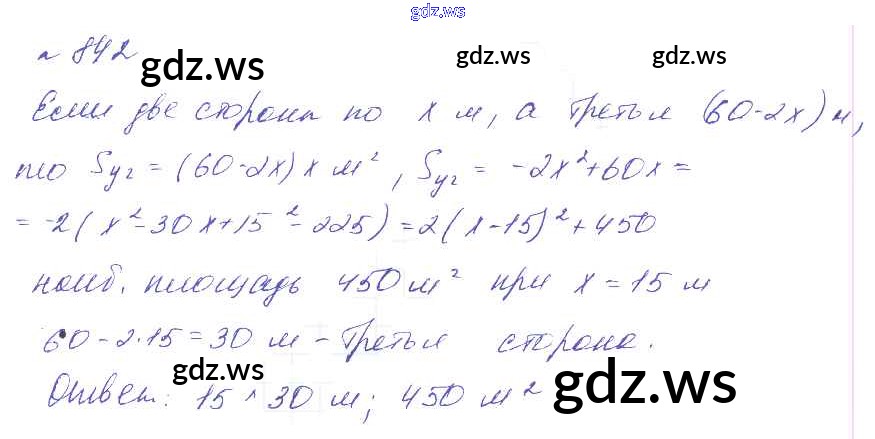 gdz.ws
n 842
gdz.ws gdz.ws gdz.ws
Если две стороны по x м, а третья (60-2x) м,
то Sуч = (60-2x) x м², Sуч = -2x²+60x =
= -2(x²-30x+15²-225) = 2(x-15)²+450
наиб. площадь 450 м² при x = 15 м
60-2·15=30 м - третья сторона.
gdz.ws gdz.ws
Ответ: 15 30 м; 450 м²